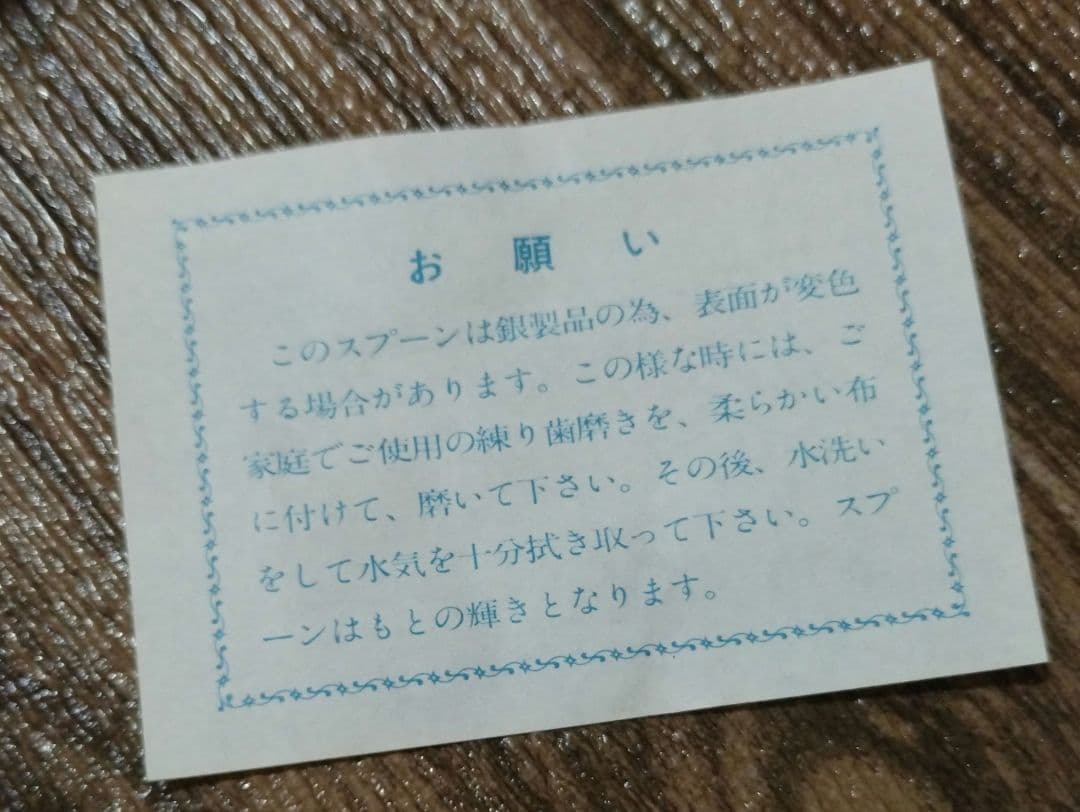 お願い
このスプーンは銀製品の為、表面が変色
する場合があります。この様な時には、ご
家庭でご使用の練り歯磨きを、柔らかい布
に付けて、磨いて下さい。その後、水洗い
をして水気を十分拭き取って下さい。スプ
ーンはもとの輝きとなります。